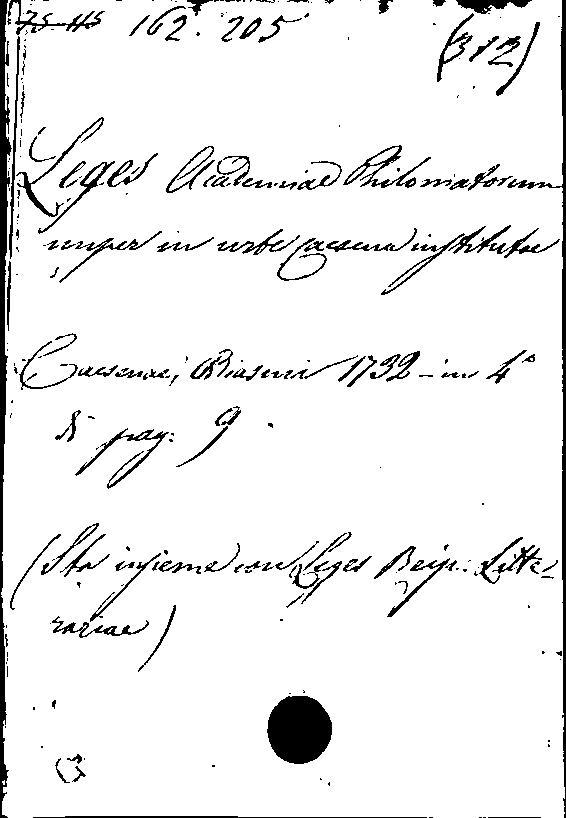 75-115 162. 205
(312)
Leges Academiae Philomatorum
nuper in urbe Caesena institutae
Caesenae, Biasini 1732 - in 4°
di pag. 9.
(Sta insieme con Leges Reip. Litte-
rariae)